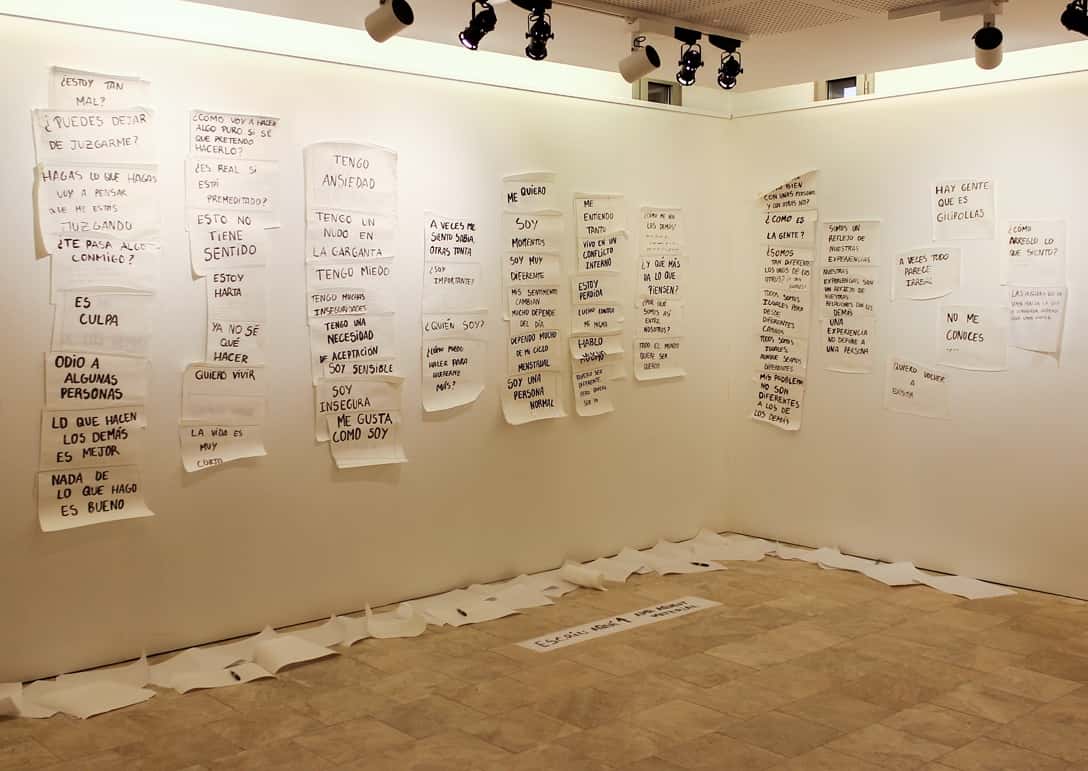 ¿ESTOY TAN
MAL?
¿PUEDES DEJAR
DE JUZGARME?
HAGAS LO QUE HAGAS
VOY A PENSAR
QUE ME ESTAS
JUZGANDO
¿TE PASA ALGO
CONMIGO?
ES
CULPA
ODIO A
ALGUNAS
PERSONAS
LO QUE HACEN
LOS DEMÁS
ES MEJOR
NADA DE
LO QUE HAGO
ES BUENO
¿CÓMO VOY A HACER
ALGO PURO SI SÉ
QUE PRETENDO
HACERLO?
¿ES REAL SI
ESTÁ
PREMEDITADO?
ESTO NO
TIENE
SENTIDO
ESTOY
HARTA
YA NO SÉ
QUÉ
HACER
QUIERO VIVIR
LA VIDA ES
MUY
CORTA
TENGO
ANSIEDAD
TENGO UN
NUDO EN
LA GARGANTA
TENGO MIEDO
TENGO MUCHAS
INSEGURIDADES
TENGO UNA
NECESIDAD
DE ACEPTACIÓN
SOY SENSIBLE
SOY
INSEGURA
ME GUSTA
COMO SOY
A VECES ME
SIENTO SABIA,
OTRAS TONTA
¿SOY
IMPORTANTE?
¿QUIÉN SOY?
¿CÓMO PUEDO
HACER PARA
QUERERME
MÁS?
ME QUIERO
SOY
MOMENTOS
SOY MUY
DIFERENTE
MIS SENTIMIENTO
CAMBIAN
MUCHO DEPENDE
DEL DÍA
DEPENDO MUCHO
DE MI CICLO
MENSTRUAL
SOY UNA
PERSONA
NORMAL
ME
ENTIENDO
TANTO
VIVO EN UN
CONFLICTO
INTERNO
ESTOY
PERDIDA
LUCHO CONTRA
MI MISMA
HABLO
MUCHO
QUIERO SER
DIFERENTE
PERO QUIERO
SER YO
¿CÓMO ME VEN
LOS DEMÁS?
¿Y QUÉ MÁS
DA LO QUE
PIENSEN?
¿POR QUÉ
SOMOS ASÍ
ENTRE
NOSOTROS?
TODO EL MUNDO
QUIERE SER
QUERIDO
BIEN
CON UNAS PERSONAS
Y CON OTRAS NO?
¿CÓMO ES
LA GENTE?
¿SOMOS
TAN DIFERENTES
LOS UNOS DE LOS
OTROS?
TODOS SOMOS
IGUALES PERO
DESDE
DIFERENTES
CAMINOS
TODOS SOMOS
IGUALES
AUNQUE SEAMOS
DIFERENTES
MIS PROBLEMAS
NO SON
DIFERENTES
A LOS DE
LOS DEMÁS
SOMOS UN
REFLEJO DE
NUESTRAS
EXPERIENCIAS
NUESTRAS
EXPERIENCIAS SON
UN REFLEJO DE
NUESTRAS
RELACIONES CON LOS
DEMÁS
UNA
EXPERIENCIA
NO DEFINE A
UNA PERSONA
HAY GENTE
QUE ES
GILIPOLLAS
A VECES TODO
PARECE
IRREAL
NO ME
CONOCES
...
QUIERO VOLVER
A
EXISTIR
¿CÓMO
ARREGLO LO
QUE SIENTO?
ESCRIU AQUÍ AMB AQUEST
MATERIAL